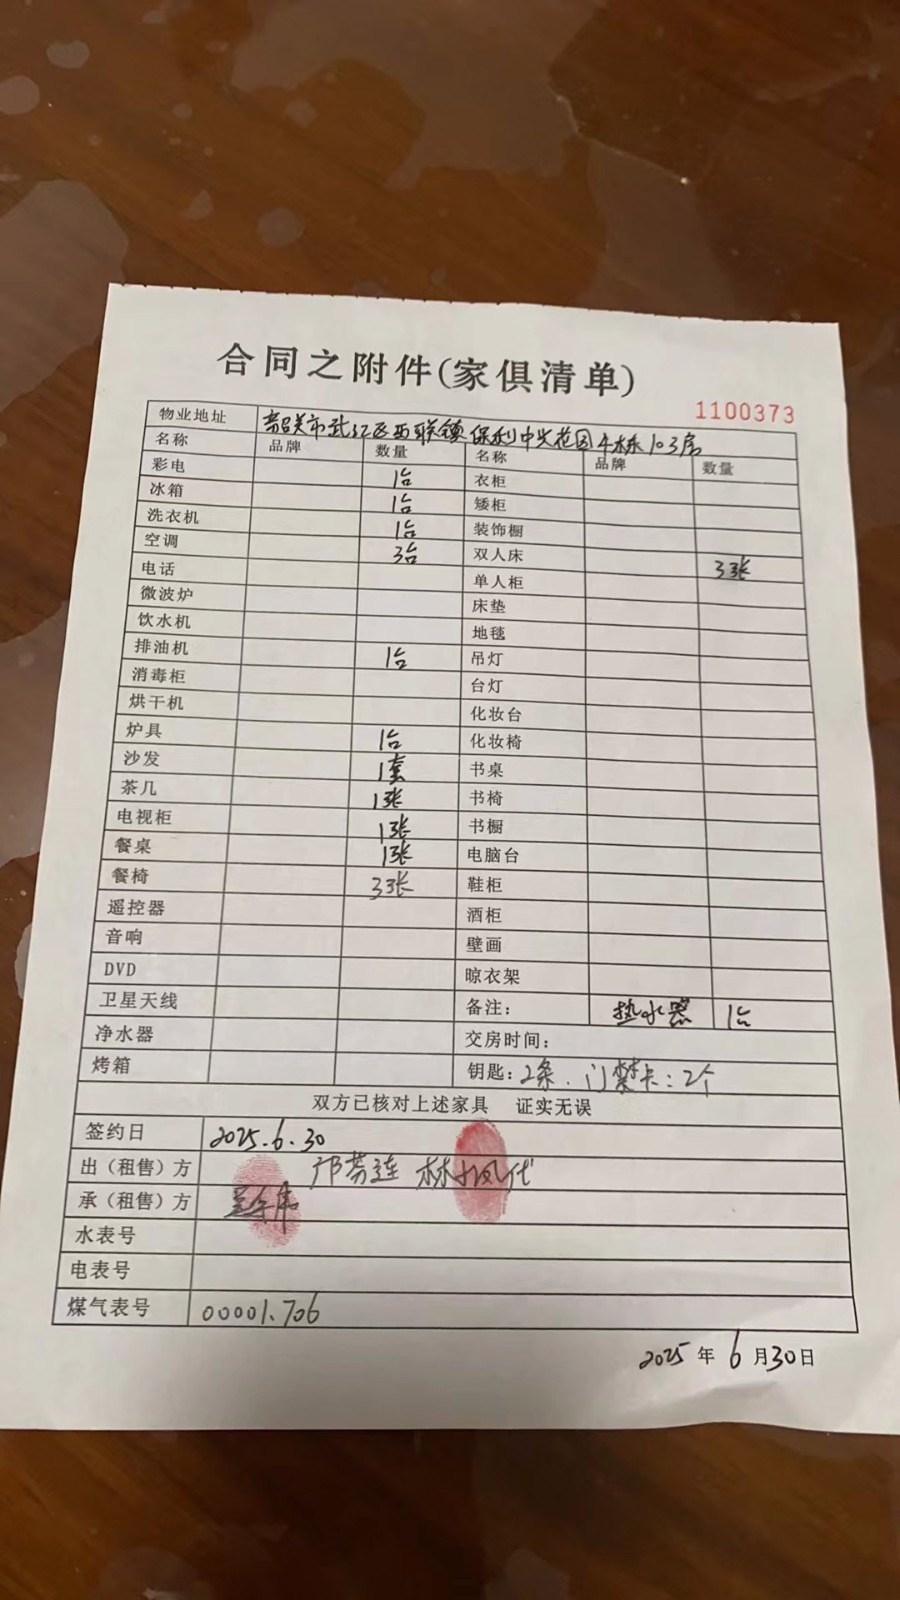 合同之附件(家俱清单)
1100373
物业地址 韶关市武江区西联镇保利中央花园4栋103房
名称 品牌 数量 名称 品牌 数量
彩电 1台 衣柜
冰箱 1台 矮柜
洗衣机 1台 装饰橱
空调 3台 双人床 3张
电话 单人柜
微波炉 床垫
饮水机 地毯
排油机 1台 吊灯
消毒柜 台灯
烘干机 化妆台
炉具 1台 化妆椅
沙发 1套 书桌
茶几 1张 书椅
电视柜 1张 书橱
餐桌 1张 电脑台
餐椅 3张 鞋柜
遥控器 酒柜
音响 壁画
DVD 晾衣架
卫星天线 备注： 热水器 1台
净水器 交房时间：
烤箱 钥匙：2条、门禁卡：2个
双方已核对上述家具 证实无误
签约日 2025.6.30
出（租售）方 邝芳连 林小凤代
承（租售）方
水表号
电表号
煤气表号 00001.706
2025年6月30日